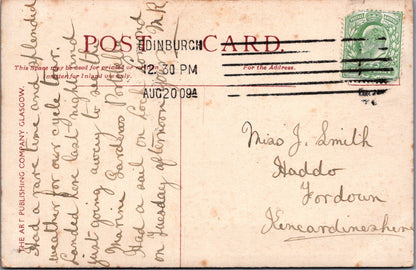 POST CARD.
This Space may be used for printed or written
matter for Inland use only.
For the Address.
EDINBURGH
12.60 PM
AUG 20 09
THE ART PUBLISHING COMPANY, GLASGOW.
Had a rare time and splendid
weather for our cycle tour.
Landed here last night and
just going away to see the
Marine Gardens Portobello
Had a sail on Loch Lomond
on Tuesday afternoon. M R
Miss J. Smith
Haddo
Fordoun
Kincardineshire